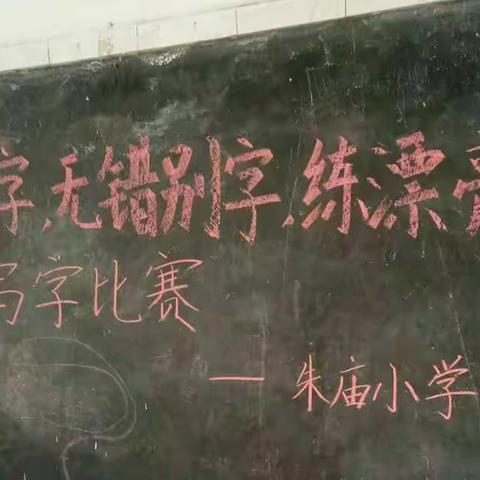 字,无错别字,练漂亮
写字比赛
— 朱庙小学